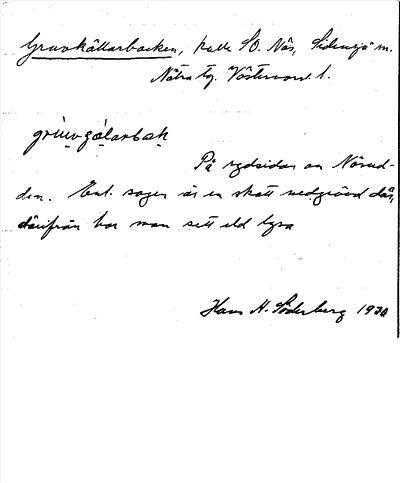 Gruvkällarbacken, kulle SO. Näs, Sidensjö sn.
Nätra tg. Västernorrl. l.
grùvɔgálarbak
På sydsidan av Näsud-
den. Enl. sagen är en skatt nedgrävd där,
därifrån har man sett eld lysa
Hans H. Söderberg 1930